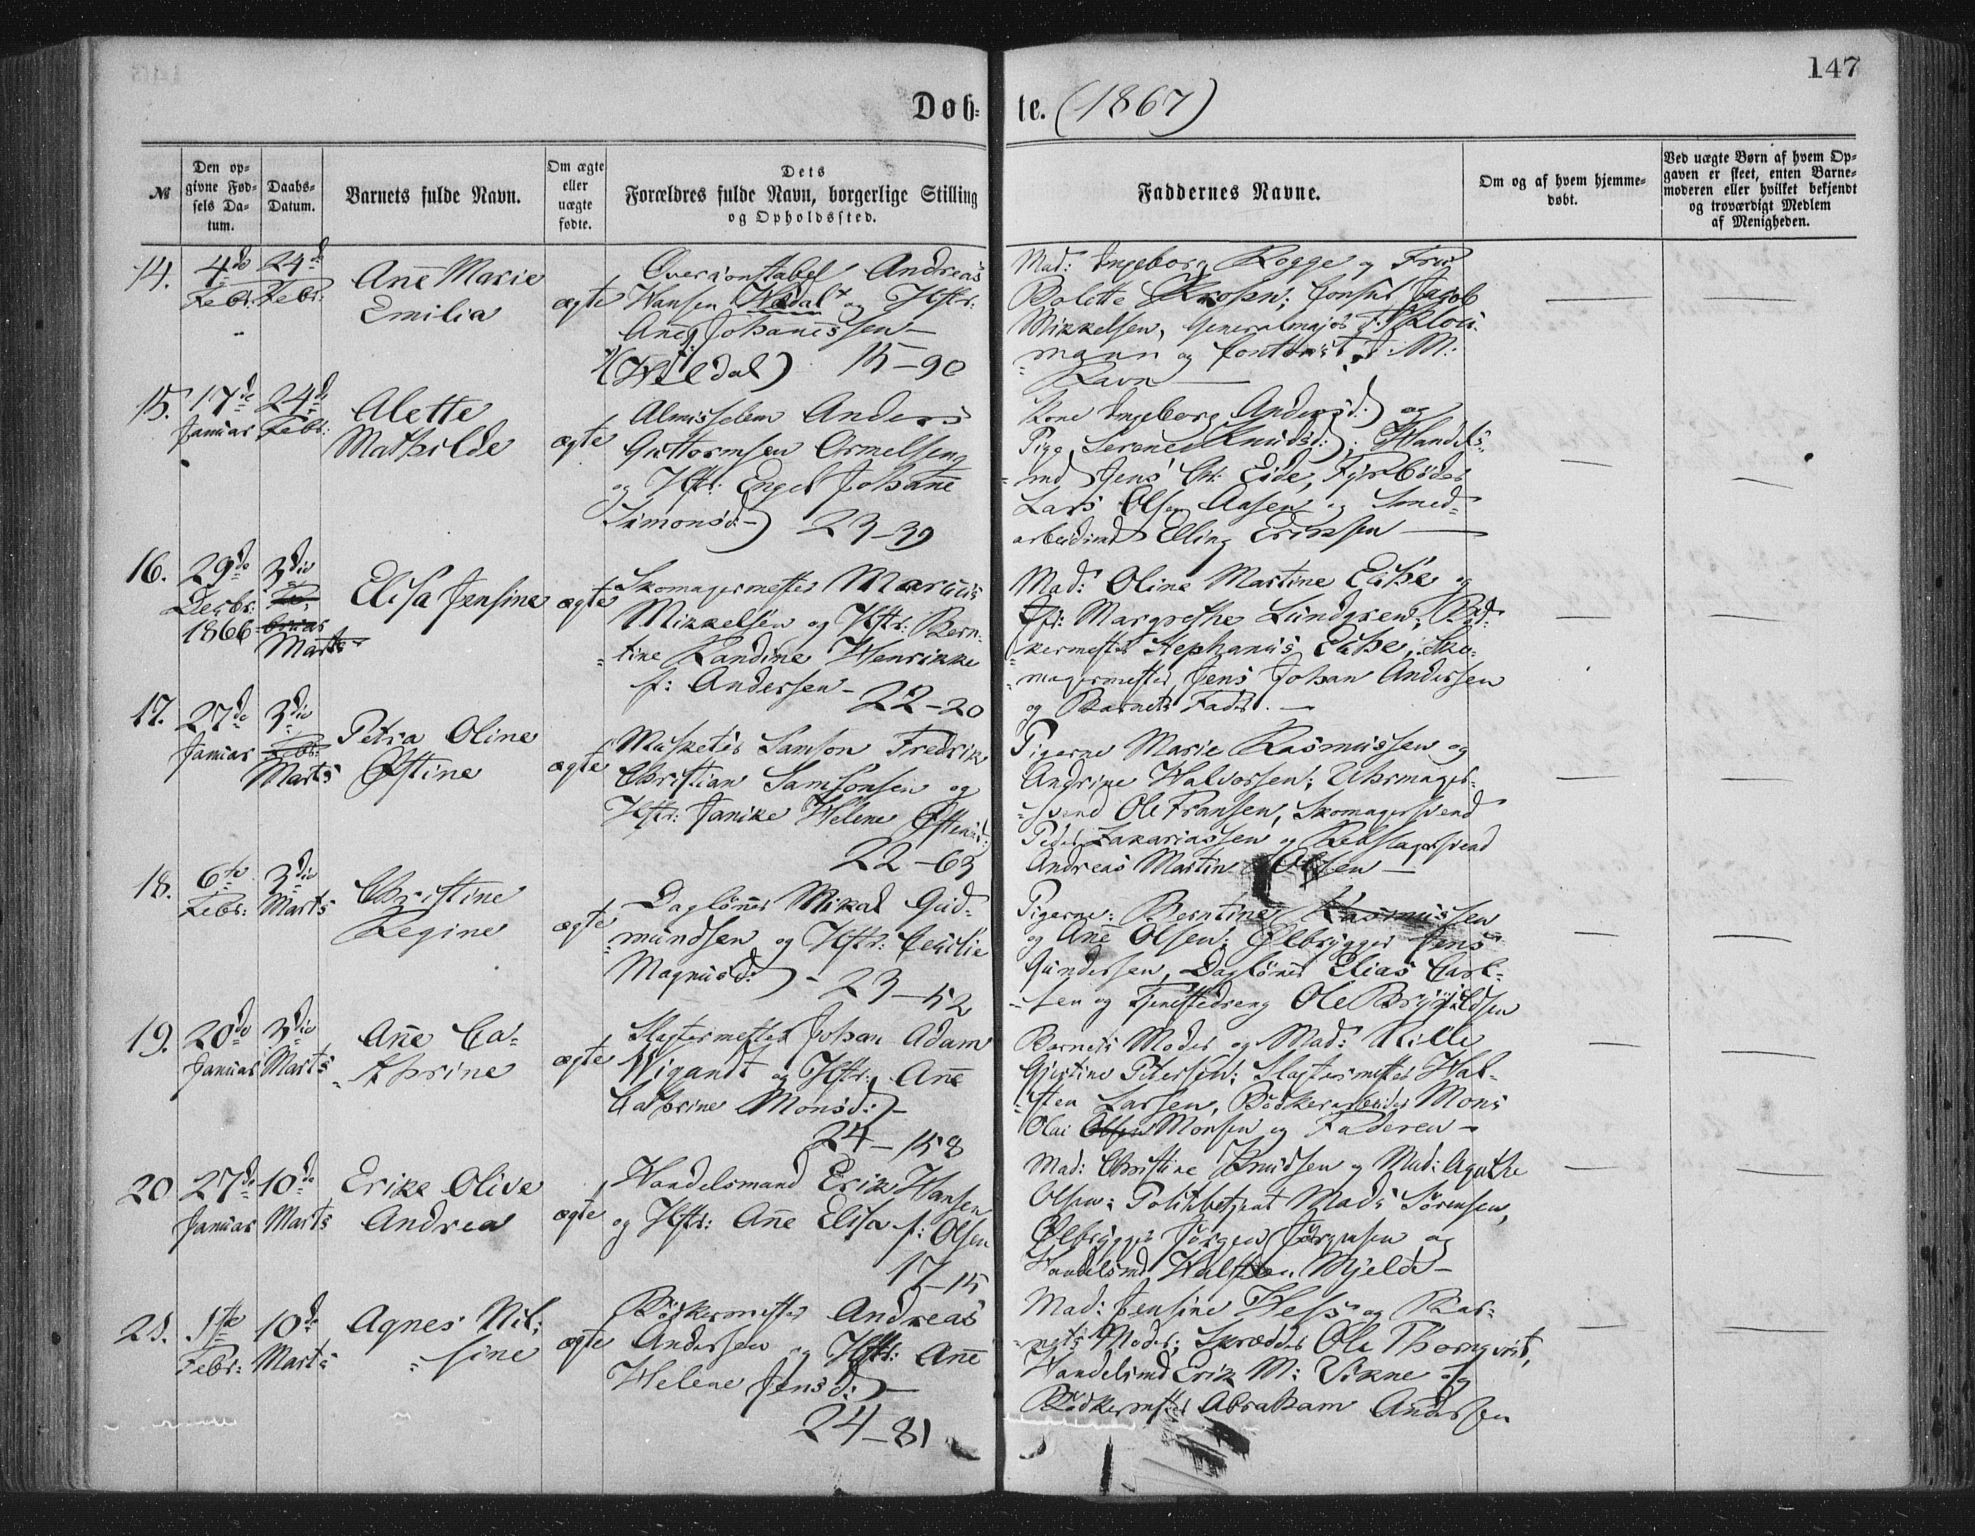 147
Døb-
te. (1867)
№
Den op-
givne Fød-
sels Da-
tum.
Daabs-
Datum.
Barnets fulde Navn.
Om ægte
eller
uægte
fødte.
Dets
Forældres fulde Navn, borgerlige Stilling
og Opholdssted.
Faddernes Navne.
Om og af hvem hjemme-
døbt.
Ved uægte Børn af hvem Op-
gaven er skeet, enten Barne-
moderen eller hvilket bekjendt
og troværdigt Medlem
af Menigheden.
14.
4de
Febr:
24d
Febr:
Anne Marie
Emilia
ægte
Andreas
Hansen og Hstr:
Ane Johannessen
15-90
Mad: Ingeborg Rogge og Frue
Bolette Consul Jacob
Mikkelsen, Generalmajor F.
mann og Contorist J: M:
Ravn
15.
17de
Januar
24d
Febr:
Alette
Mathilde
ægte
Almisselem Anders
Guttormsen Ormelsen
og Hstr: Engel Johanne
Simonsd:
23-39
Kone Ingeborg Andersd: og
Pige Serene Knudsd: Handels-
md Jens Ch: Eide, Fyrbøder
Lars Olsen Aasen og Smed-
arbeidsmd Elling Eriksen
16.
29de
Decbr:
1866
3die
Marts
Elisa Jensine
ægte
Skomagermester Marcus
Mikkelsen og Hstr: Bern-
tine Randine Henrikke
f: Andersen
22-20
Mad: Oline Martine
Margrethe Lundgren; Bød-
kermester Stephanus Sko-
magermester Jens Johan Andersen
og Barnets Fader.
17.
27de
Januar
3die
Febr:
Marts
Petra Oline
Østine
ægte
Musketer Samson Fredrik
Christian Samsonsen og
Hstr: Janike Helene
22-63
Pigerne Marie Rasmussen og
Andrine Halvorsen; Uhrmager-
svend Ole Fransen, Skomagersvend
Peder Zakariassen og Rebslagersvend
Andreas Martin Olsen
18.
6te
Febr:
3die
Marts
Christine
Regine
ægte
Daglønner Mikal Gud-
mundsen og Hstr: Cecilie
Magnusd:
23-52
Pigerne: Berntine Rasmussen
og Ane Olsen; Ølbrygger Jens
Gundersen, Daglønner Elias Carl-
sen og Tjenestedreng Ole Brynildsen
19.
20de
Januar
3die
Marts
Anne Ca-
thrine
ægte
Slagtermester Johan Adam
Wigandt og Hstr: Anne
Cathrine Monsd:
24-158
Barnets Moder og Mad: Nille
Gjertine Petersen; Slagtermester Hal-
sten Larsen, Bødkerarbeider Mons
Olai Olsen Monsen og Faderen
20
27de
Januar
10de
Marts
Erike Olive
Andrea
ægte
Handelsmand Erik Hansen
og Hstr: Anne Elisa f: Olsen
17-15
Mad: Christine Knudsen og Mad: Agathe
Olsen; Politibetjent Mads Sørensen,
Ølbrygger Jørgen Jørgensen og
Handelsmd Halsten Mjelde
21.
1ste
Febr:
10de
Marts
Agnes Nil-
sine
ægte
Bødkermester Andreas
Andersen og Hstr: Anne
Helene Jensd:
24-81
Mad: Jensine Wess og Bar-
nets Moder; Skrædder Ole Thornqvist,
Handelsmd Erik M: Vikne og
Bødkermester Abraham Andersen